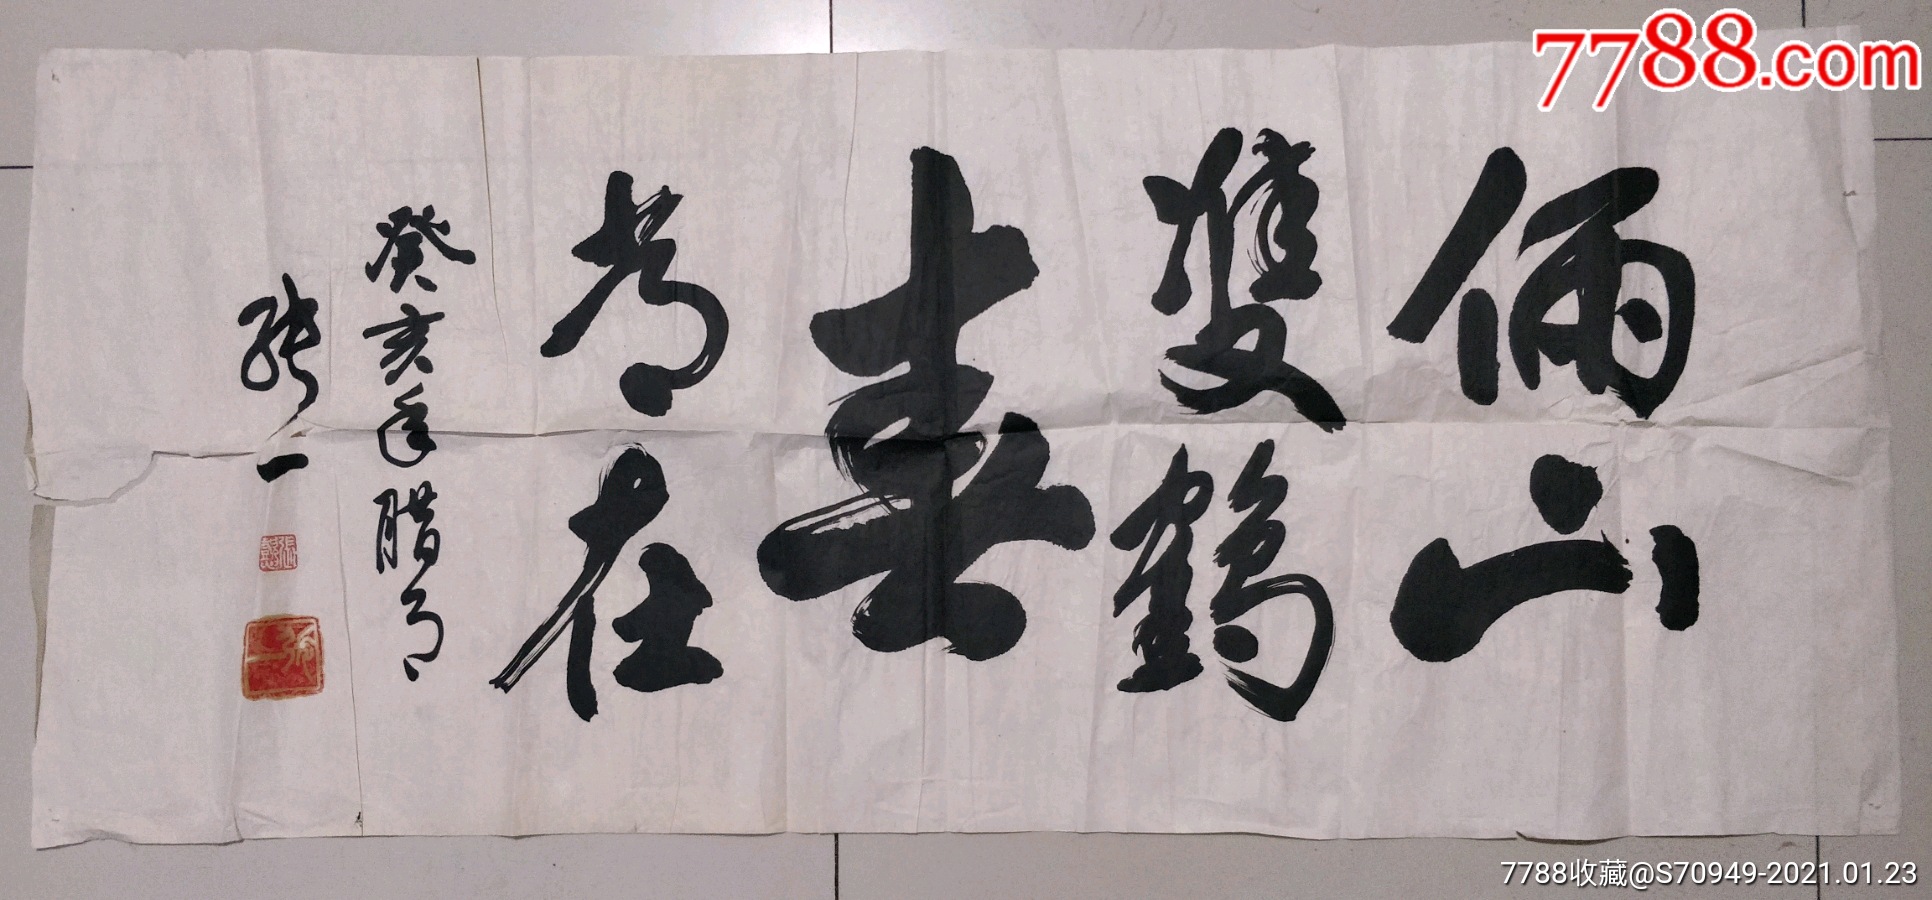 7788.com
俩山
雙鶴
在
癸亥年腊月
张一
张一
7788收藏@S70949-2021.01.23